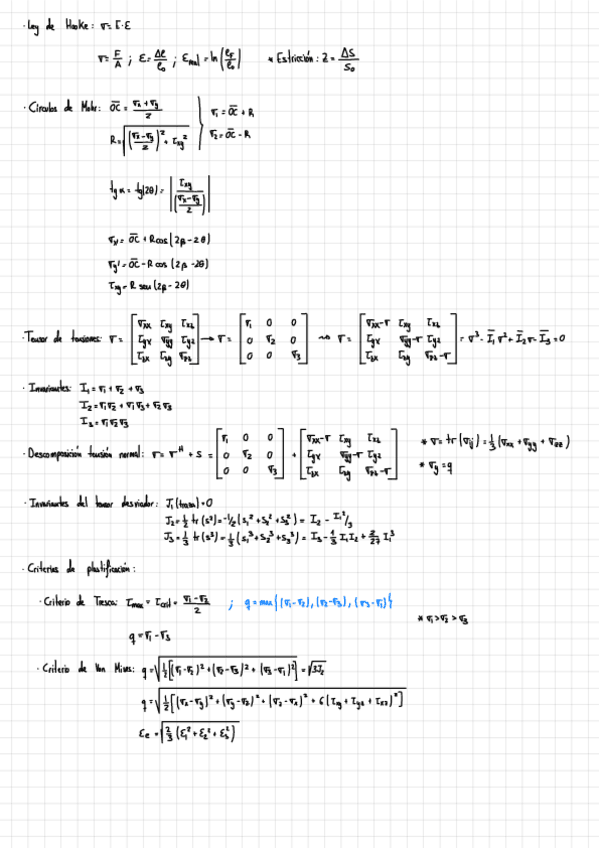 · Ley de Hooke: σ = E·ε
σ = F/A ; ε = Δl/l₀ ; ε_real = ln(l_f/l₀) * Estricción: Z = ΔS/S₀
· Círculos de Mohr: OC̅ = (σx + σy)/2 } σ₁ = OC̅ + R
R = √(((σx - σy)/2)² + τxy²) } σ₂ = OC̅ - R
tg α = tg(2θ) = |τxy / ((σx - σy)/2)|
σx' = OC̅ + R cos(2β - 2θ)
σy' = OC̅ - R cos(2β - 2θ)
τxy = R sen(2β - 2θ)
· Tensor de tensiones: σ = [σxx τxy τxz; τyx σyy τyz; τzx τzy σzz] → σ = [σ₁ 0 0; 0 σ₂ 0; 0 0 σ₃] ⇝ σ = [σxx-σ τxy τxz; τyx σyy-σ τyz; τzx τzy σzz-σ] = σ³ - I̅₁σ² + I̅₂σ - I̅₃ = 0
· Invariantes: I₁ = σ₁ + σ₂ + σ₃
I₂ = σ₁σ₂ + σ₁σ₃ + σ₂σ₃
I₃ = σ₁σ₂σ₃
· Descomposición tensión normal: σ = σᴴ + s = [σ₁ 0 0; 0 σ₂ 0; 0 0 σ₃] + [σxx-σ τxy τxz; τyx σyy-σ τyz; τzx τzy σzz-σ] * σ = tr(σij) = 1/3(σxx + σyy + σzz)
* σy = q
· Invariantes del tensor desviador: J₁(traza) = 0
J₂ = 1/2 tr(s²) = -1/2(s₁² + s₂² + s₃²) = I₂ - I₁²/3
J₃ = 1/3 tr(s³) = 1/3(s₁³ + s₂³ + s₃³) = I₃ - 1/3 I₁I₂ + 2/27 I₁³
· Criterios de plastificación:
· Criterio de Tresca: τmax = τcrit = (σ₁ - σ₂)/2 ; q = max{(σ₁-σ₂), (σ₂-σ₃), (σ₃-σ₁)}
* σ₁ > σ₂ > σ₃
q = σ₁ - σ₃
· Criterio de Von Mises: q = √(1/2[(σ₁-σ₂)² + (σ₂-σ₃)² + (σ₃-σ₁)²]) = √(3J₂)
q = √(1/2[(σx-σy)² + (σy-σz)² + (σz-σx)² + 6(τxy + τyz + τxz)²])
εe = √(2/3(ε₁² + ε₂² + ε₃²))